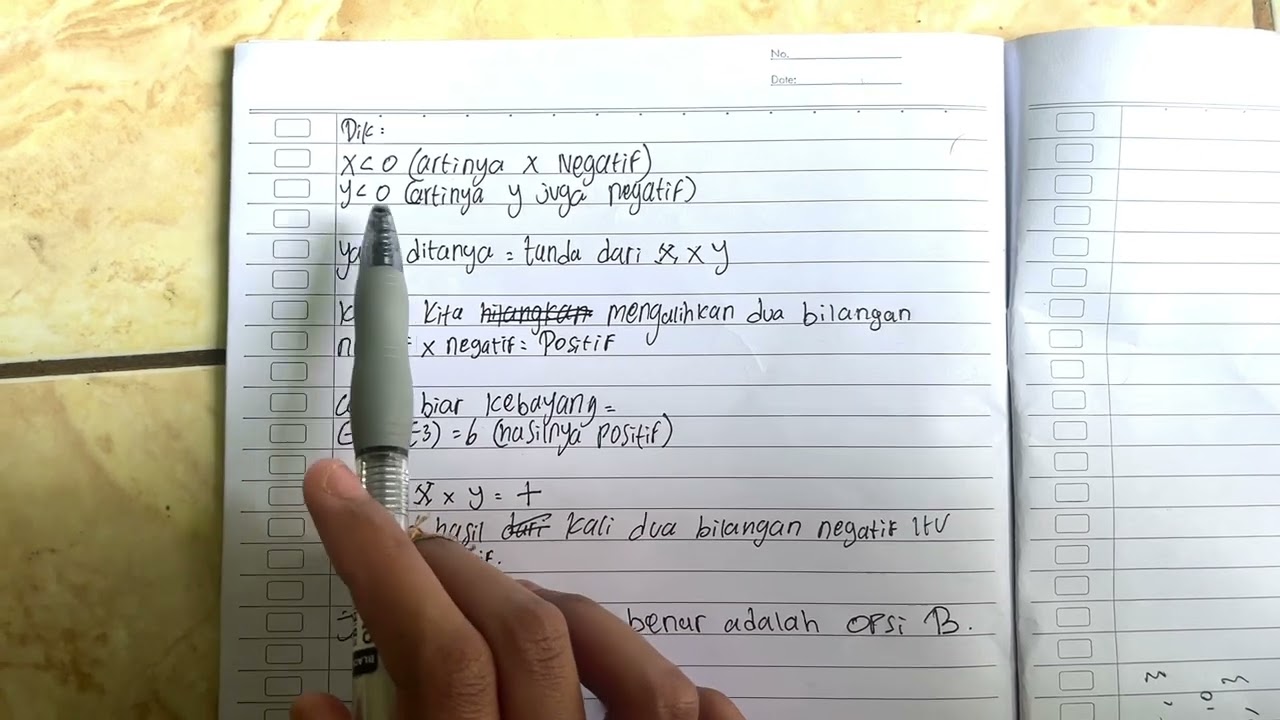 No.
Date:
Dik:
x < 0 (artinya x Negatif)
y < 0 (artinya y juga negatif)
ditanya = tanda dari x x y
kita hilangkan mengalihkan dua bilangan
x negatif = Positif
biar kebayang =
= 6 (hasilnya positif)
x x y = +
hasil dari kali dua bilangan negatif itu
benar adalah opsi B.